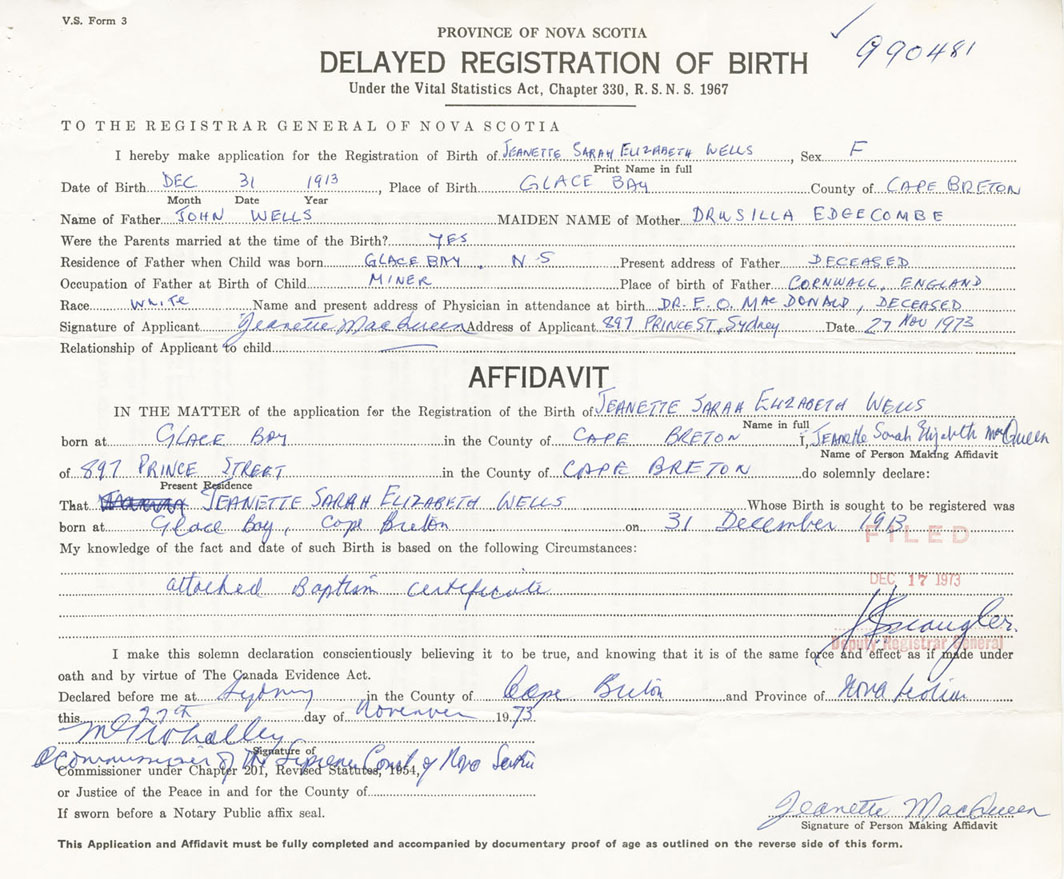 V.S. Form 3
PROVINCE OF NOVA SCOTIA
990481
DELAYED REGISTRATION OF BIRTH
Under the Vital Statistics Act, Chapter 330, R. S. N. S. 1967
TO THE REGISTRAR GENERAL OF NOVA SCOTIA
I hereby make application for the Registration of Birth of JEANETTE SARAH ELIZABETH WELLS, Sex F
Print Name in full
Date of Birth DEC 31 1913, Place of Birth GLACE BAY County of CAPE BRETON
Month Date Year
Name of Father JOHN WELLS MAIDEN NAME of Mother DRUSILLA EDGECOMBE
Were the Parents married at the time of the Birth? YES
Residence of Father when Child was born GLACE BAY, N S Present address of Father DECEASED
Occupation of Father at Birth of Child MINER Place of birth of Father CORNWALL, ENGLAND
Race WHITE Name and present address of Physician in attendance at birth DR. E. O. MACDONALD, DECEASED
Signature of Applicant Jeanette MacQueen Address of Applicant 897 PRINCE ST, Sydney Date 27 NOV 1973
Relationship of Applicant to child
AFFIDAVIT
IN THE MATTER of the application for the Registration of the Birth of JEANETTE SARAH ELIZABETH WELLS
Name in full
born at GLACE BAY in the County of CAPE BRETON I, JEANETTE Sarah Elizabeth MacQueen
Name of Person Making Affidavit
of 897 PRINCE STREET in the County of CAPE BRETON do solemnly declare:
Present Residence
That JEANETTE SARAH ELIZABETH WELLS Whose Birth is sought to be registered was
born at Glace Bay, Cape Breton on 31 December 1913
FILED
My knowledge of the fact and date of such Birth is based on the following Circumstances:
DEC 17 1973
attached Baptism certificate
Deputy Registrar General
I make this solemn declaration conscientiously believing it to be true, and knowing that it is of the same force and effect as if made under
oath and by virtue of The Canada Evidence Act.
Declared before me at Sydney in the County of Cape Breton and Province of Nova Scotia
this 27th day of November 1973
Signature of
A Commissioner of the Supreme Court of Nova Scotia
Commissioner under Chapter 201, Revised Statutes, 1954,
or Justice of the Peace in and for the County of
If sworn before a Notary Public affix seal.
Jeanette MacQueen
Signature of Person Making Affidavit
This Application and Affidavit must be fully completed and accompanied by documentary proof of age as outlined on the reverse side of this form.